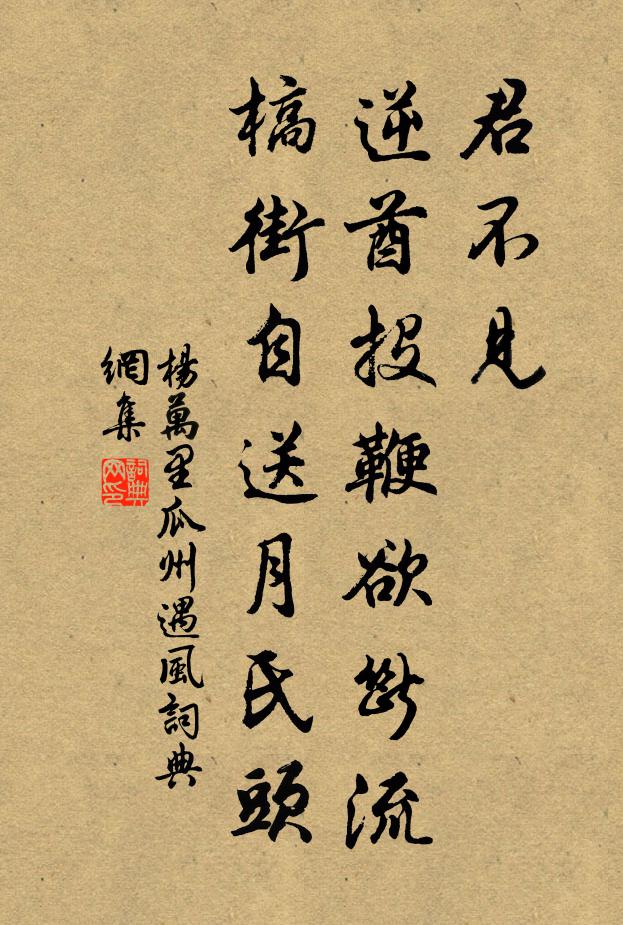 君不见
逆酋投鞭欲断流
槁街自送月氏头
楊萬里瓜州遇風詞典
網集
詞典
网印